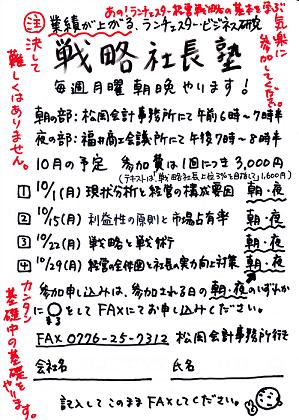 あの!ランチェスター経営戦略の基本を学ぶ
注 業績が上がる、ランチェスター・ビジネス研究
気楽に参加してください。
決して難しくはありません。
戦略社長塾
毎週月曜 朝晩やります!
朝の部:松岡会計事務所にて午前6時~7時半
夜の部:福井商工会議所にて午後7時~8時半
10月の予定 参加費は1回につき3,000円
1 10/1(月) 現状分析と経営の構成要因 朝・夜
2 10/15(月) 利益性の原則と市場占有率 朝・夜
3 10/22(月) 戦略と戦術 朝・夜
4 10/29(月) 経営の全体図と社長の実力向上対策 朝・夜
カンタン 基礎中の基礎をやります。
参加申し込みは、参加される日の朝・夜のいずれか
に○をしてFAXにてお申し込みください。
FAX 0776-25-7312 松岡会計事務所行き
会社名 氏名
記入してこのままFAXしてください。